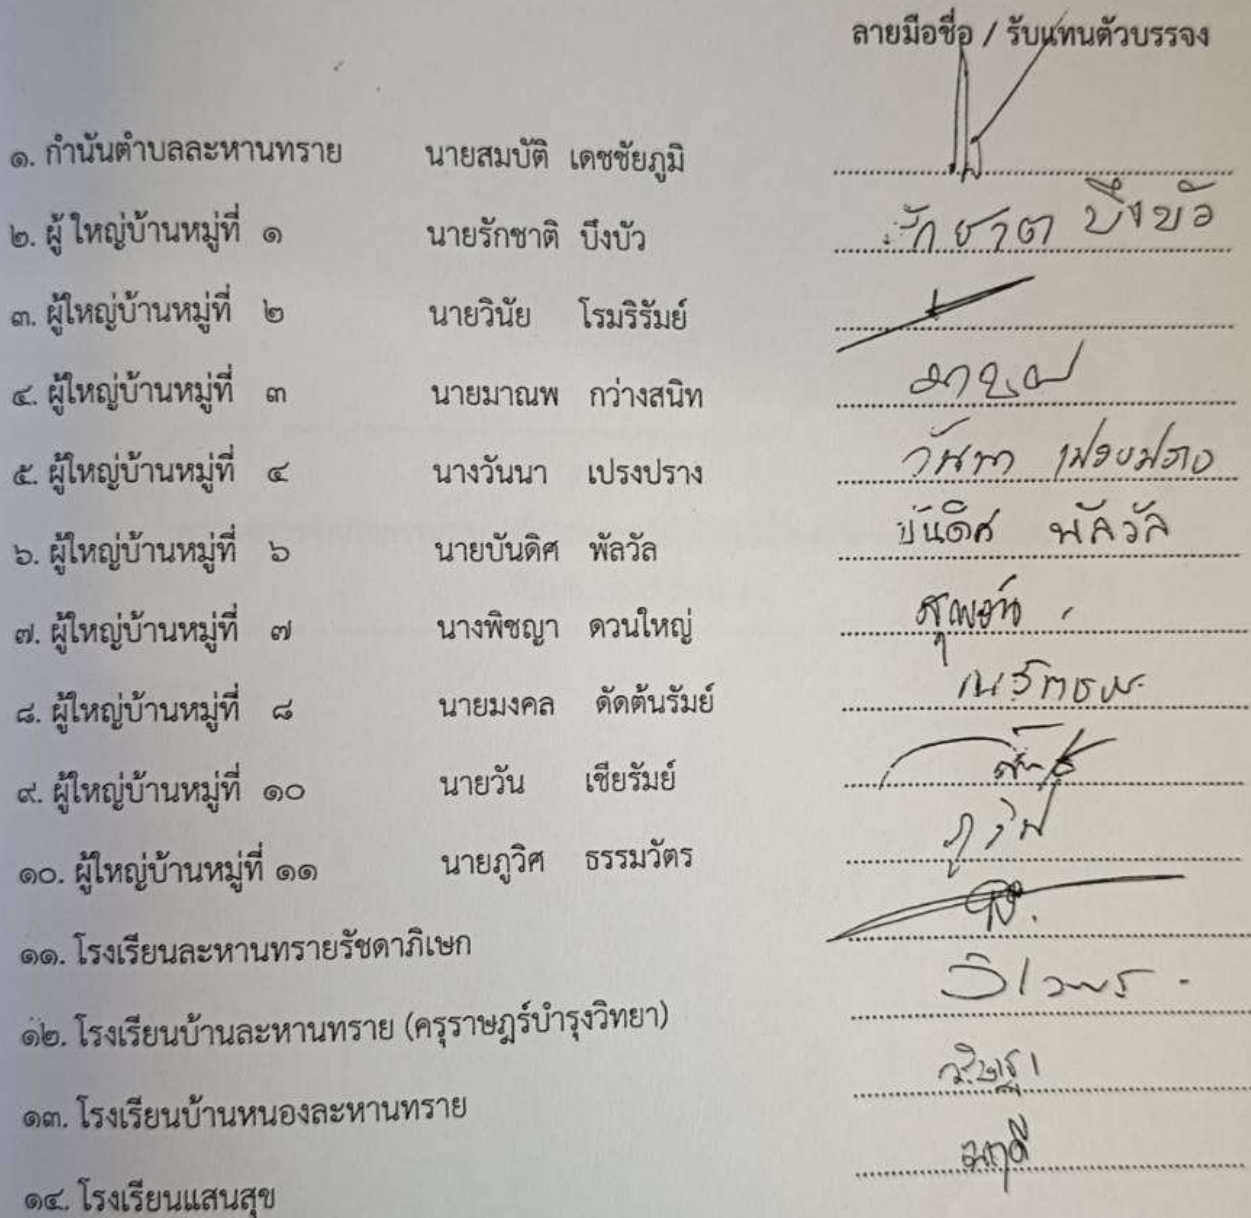 ลายมือชื่อ / รับแทนตัวบรรจง
๑. กำนันตำบลละหานทราย นายสมบัติ เดชชัยภูมิ
๒. ผู้ใหญ่บ้านหมู่ที่ ๑ นายรักชาติ บึงบัว รักชาติ บึงบัว
๓. ผู้ใหญ่บ้านหมู่ที่ ๒ นายวินัย โรมริรัมย์
๔. ผู้ใหญ่บ้านหมู่ที่ ๓ นายมาณพ กว่างสนิท
๕. ผู้ใหญ่บ้านหมู่ที่ ๔ นางวันนา เปรงปราง วันนา เปรงปราง
๖. ผู้ใหญ่บ้านหมู่ที่ ๖ นายบันดิศ พัลวัล บันดิศ พัลวัล
๗. ผู้ใหญ่บ้านหมู่ที่ ๗ นางพิชญา ดวนใหญ่
๘. ผู้ใหญ่บ้านหมู่ที่ ๘ นายมงคล ดัดต้นรัมย์
๙. ผู้ใหญ่บ้านหมู่ที่ ๑๐ นายวัน เชียรัมย์
๑๐. ผู้ใหญ่บ้านหมู่ที่ ๑๑ นายภูวิศ ธรรมวัตร ภูวิศ
๑๑. โรงเรียนละหานทรายรัชดาภิเษก
๑๒. โรงเรียนบ้านละหานทราย (ครุราษฎร์บำรุงวิทยา)
๑๓. โรงเรียนบ้านหนองละหานทราย
๑๔. โรงเรียนแสนสุข